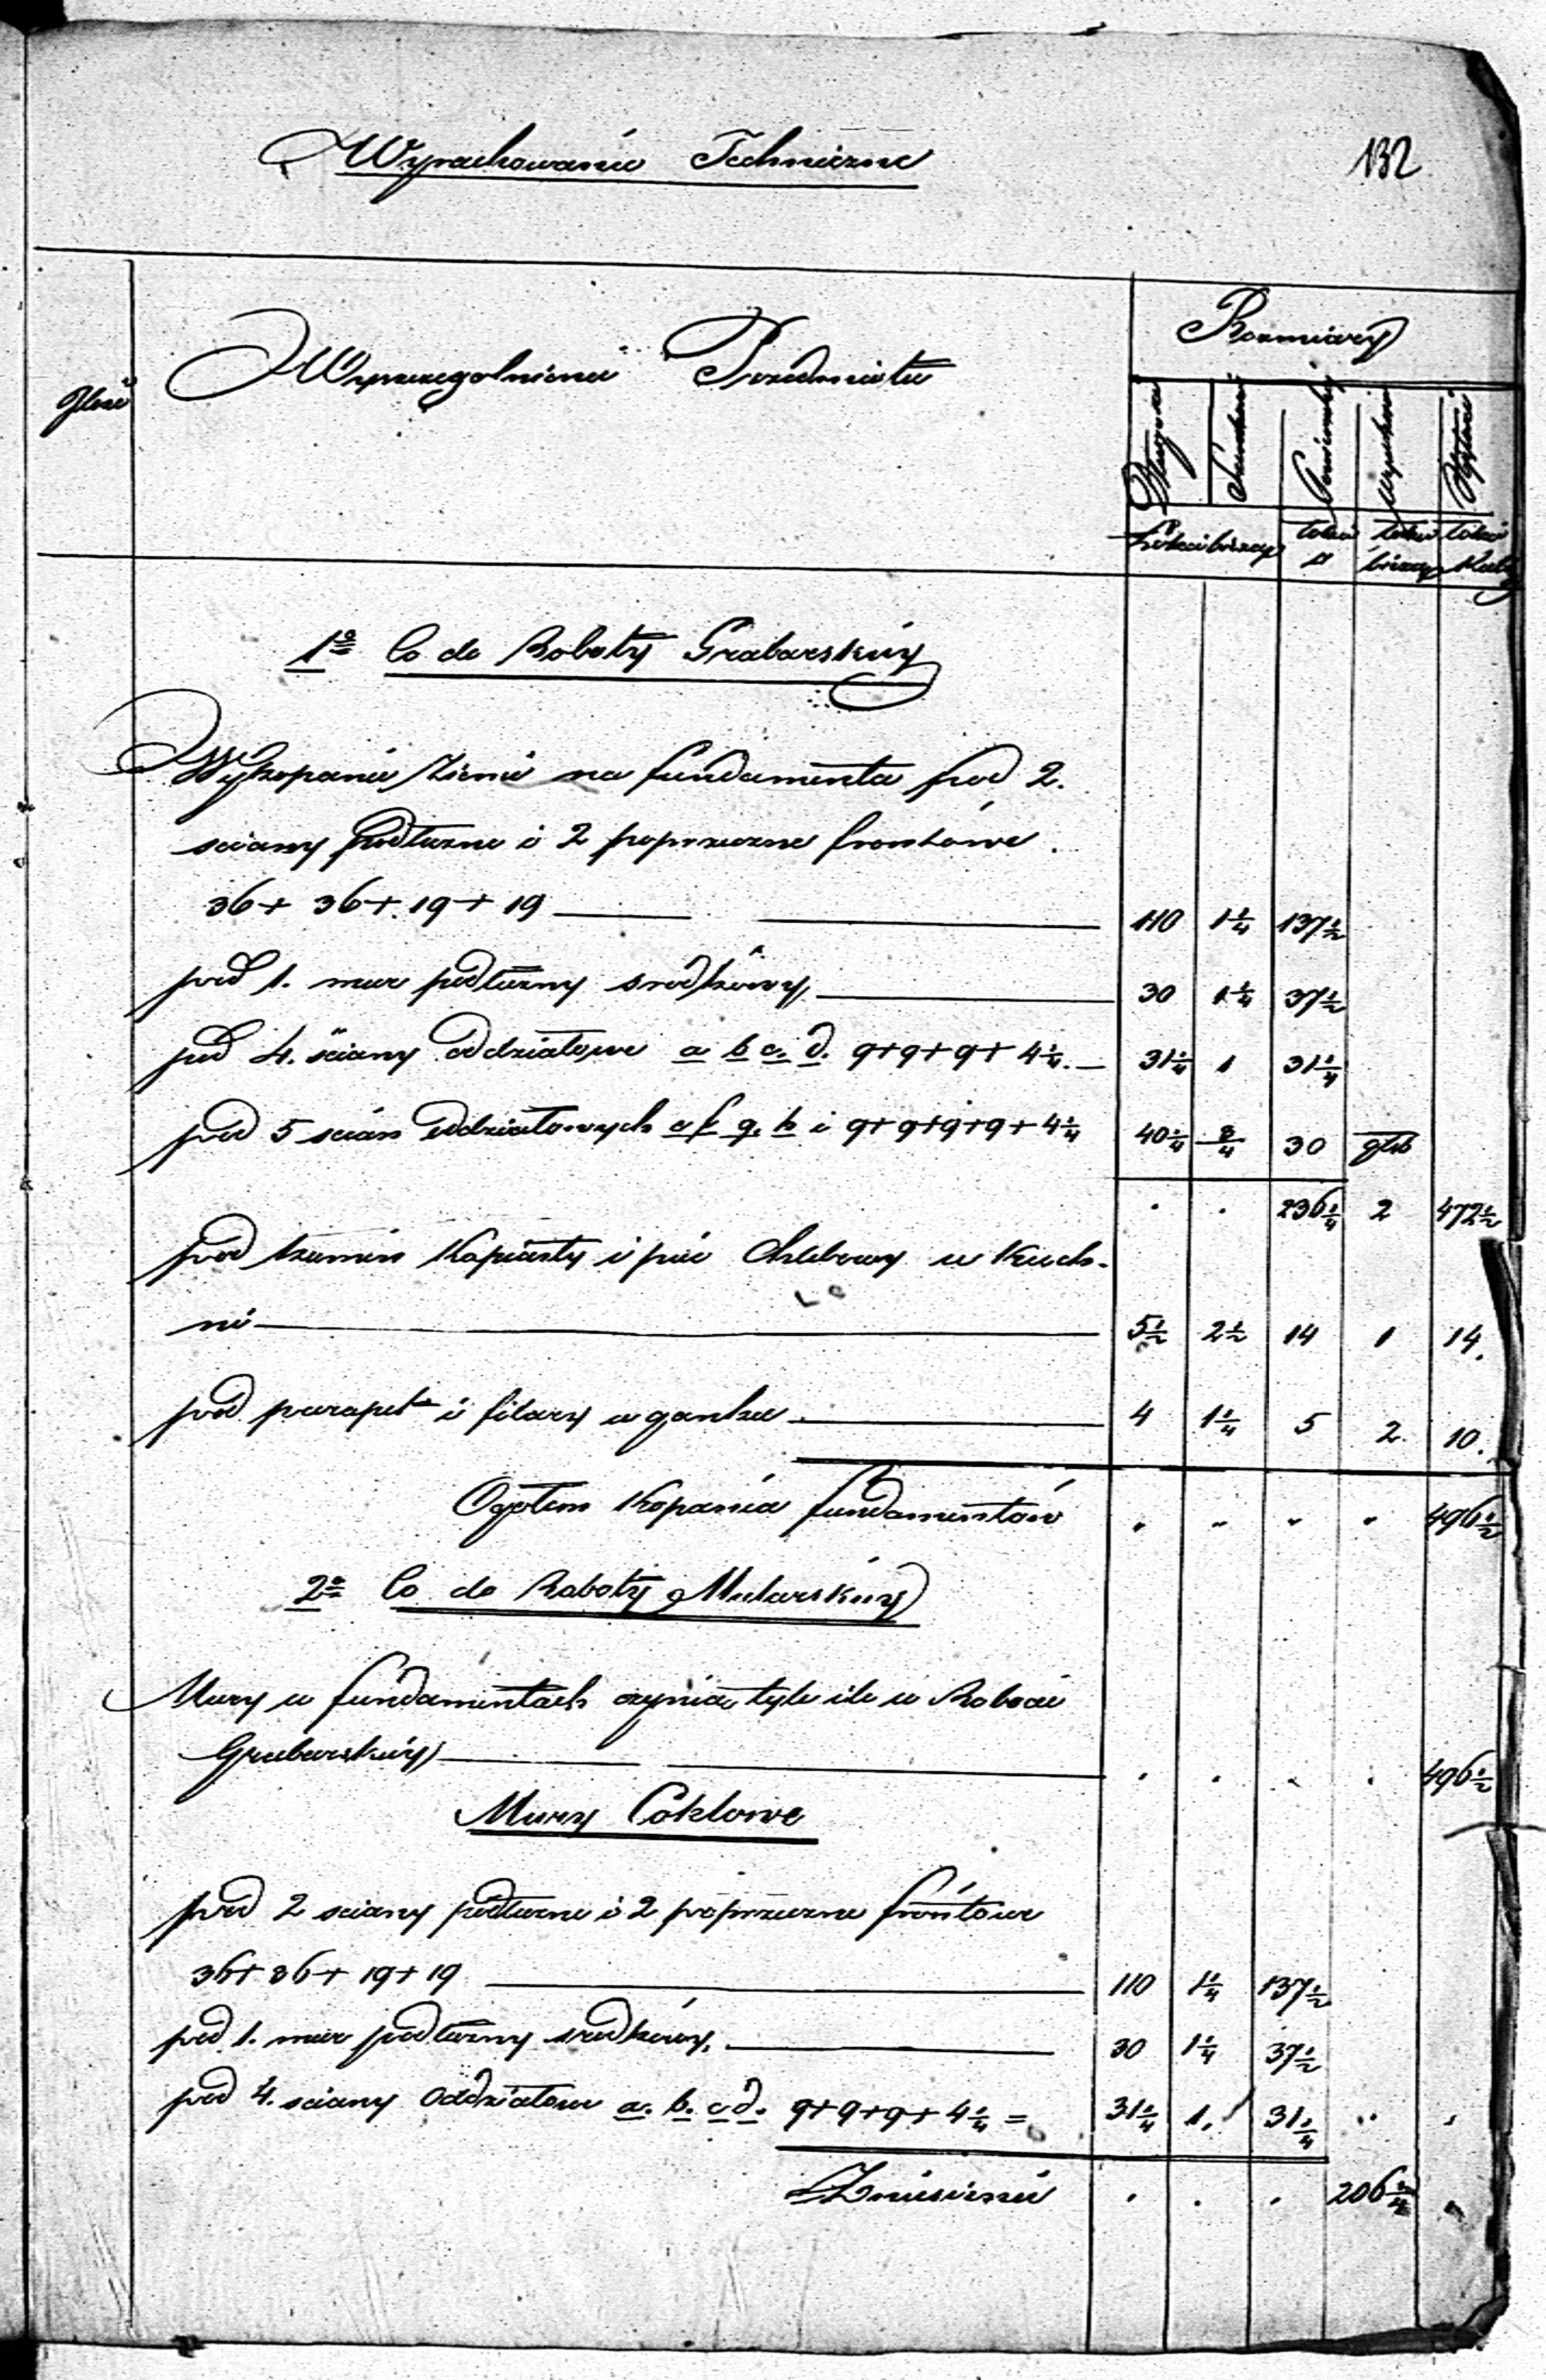 Wyrachowanie Techniczne
132
Ilość
Wyszczegolnienie Przedmiotu
Rozmiary
Długość
Szerokość
Powierzchnia
Wysokość
Objętość
Łokci bieżących
łokci □
łokci bieżący
łokci Kub
1º Co do Roboty Grabarskiéj
Wykopanie Ziemi na fundamenta pod 2.
sciany podłużne i 2 poprzeczne frontowe.
36+ 36+ 19+ 19 110 1 1/4 137 1/2
pod 1. mur podłużny srodkowy, 30 1 1/4 37 1/2
pod 4. sciany oddziałowe a b c. d. 9+9+9+ 4 1/4. 31 1/4 1 31 1/4
pod 5 scian oddziałowych e f g. h i 9+9+9+9+ 4 1/4 40 1/4 3/4 30 głb
. . 236 1/4 2 472 1/2
pod komin Kapiasty i piec Chlebowy w Kuch-
ni 5 1/2 2 1/2 14 1 14.
pod parapet i filary w ganku 4 1 1/4 5 2. 10.
Ogołem Kopania fundamentów " " " " 496 1/2
2º Co do Roboty Mularskiéj
Mury w fundamentach czynią tyle ile w Robocie
Grabarskiéj . . . . 496 1/2
Mury Coklowe
pod 2 sciany podłużne i 2 poprzeczne frontowe
36+ 36+ 19+ 19 110 1 1/4 137 1/2
pod 1. mur podłużny srodkowy. 30 1 1/4 37 1/2
pod 4. sciany Oddziałowe a. b. c d. 9+9+9+ 4 1/4 = 31 1/4 1. 31 1/4 " "
Zniesienie . . . 206 1/4 "